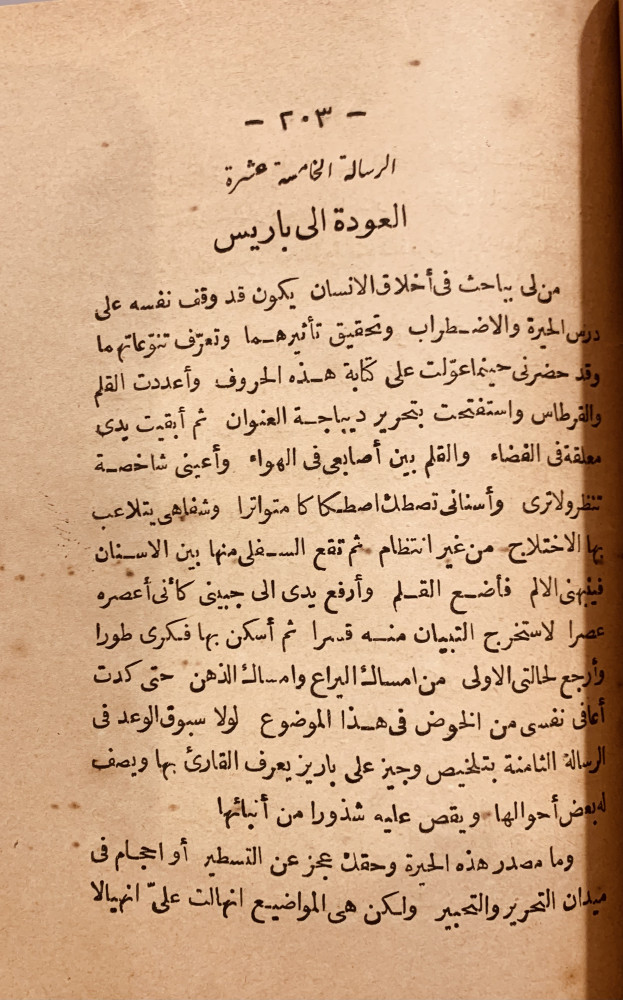 — ٢٠٣ —
الرسالة الخامسة عشرة
العودة الى باريس
من لى يباحث فى أخلاق الانسان يكون قد وقف نفسه على
درس الحيرة والاضطراب وتحقيق تأثيرهما وتعرّف تنوّعاتهما
وقد حضرنى حينما عوّلت على كتابة هذه الحروف وأعددت القلم
والقرطاس واستفتحت بتحرير ديباجة العنوان ثم أبقيت يدى
معلقة فى الفضاء والقلم بين أصابعى فى الهواء وأعينى شاخصة
تنظر ولا ترى وأسنانى تصطك اصطكاكا متواترا وشفاهى يتلاعب
بها الاختلاج من غير انتظام ثم تقع السفلى منها بين الاسنان
فينبهنى الالم فأضع القلم وأرفع يدى الى جبينى كأنى أعصره
عصرا لاستخرج التبيان منه قسرا ثم أسكن بها فكرى طورا
وأرجع لحالتى الاولى من امساك اليراع وامساك الذهن حتى كدت
أعافى نفسى من الخوض فى هذا الموضوع لولا سبوق الوعد فى
الرسالة الثامنة بتلخيص وجيز على باريز يعرف القارئ بها ويصف
له بعض أحوالها ويقص عليه شذورا من أنبائها
وما مصدر هذه الحيرة وحقك عجز عن التسطير أو احجام فى
ميدان التحرير والتحبير ولكن هى المواضيع انهالت علىّ انهيالا